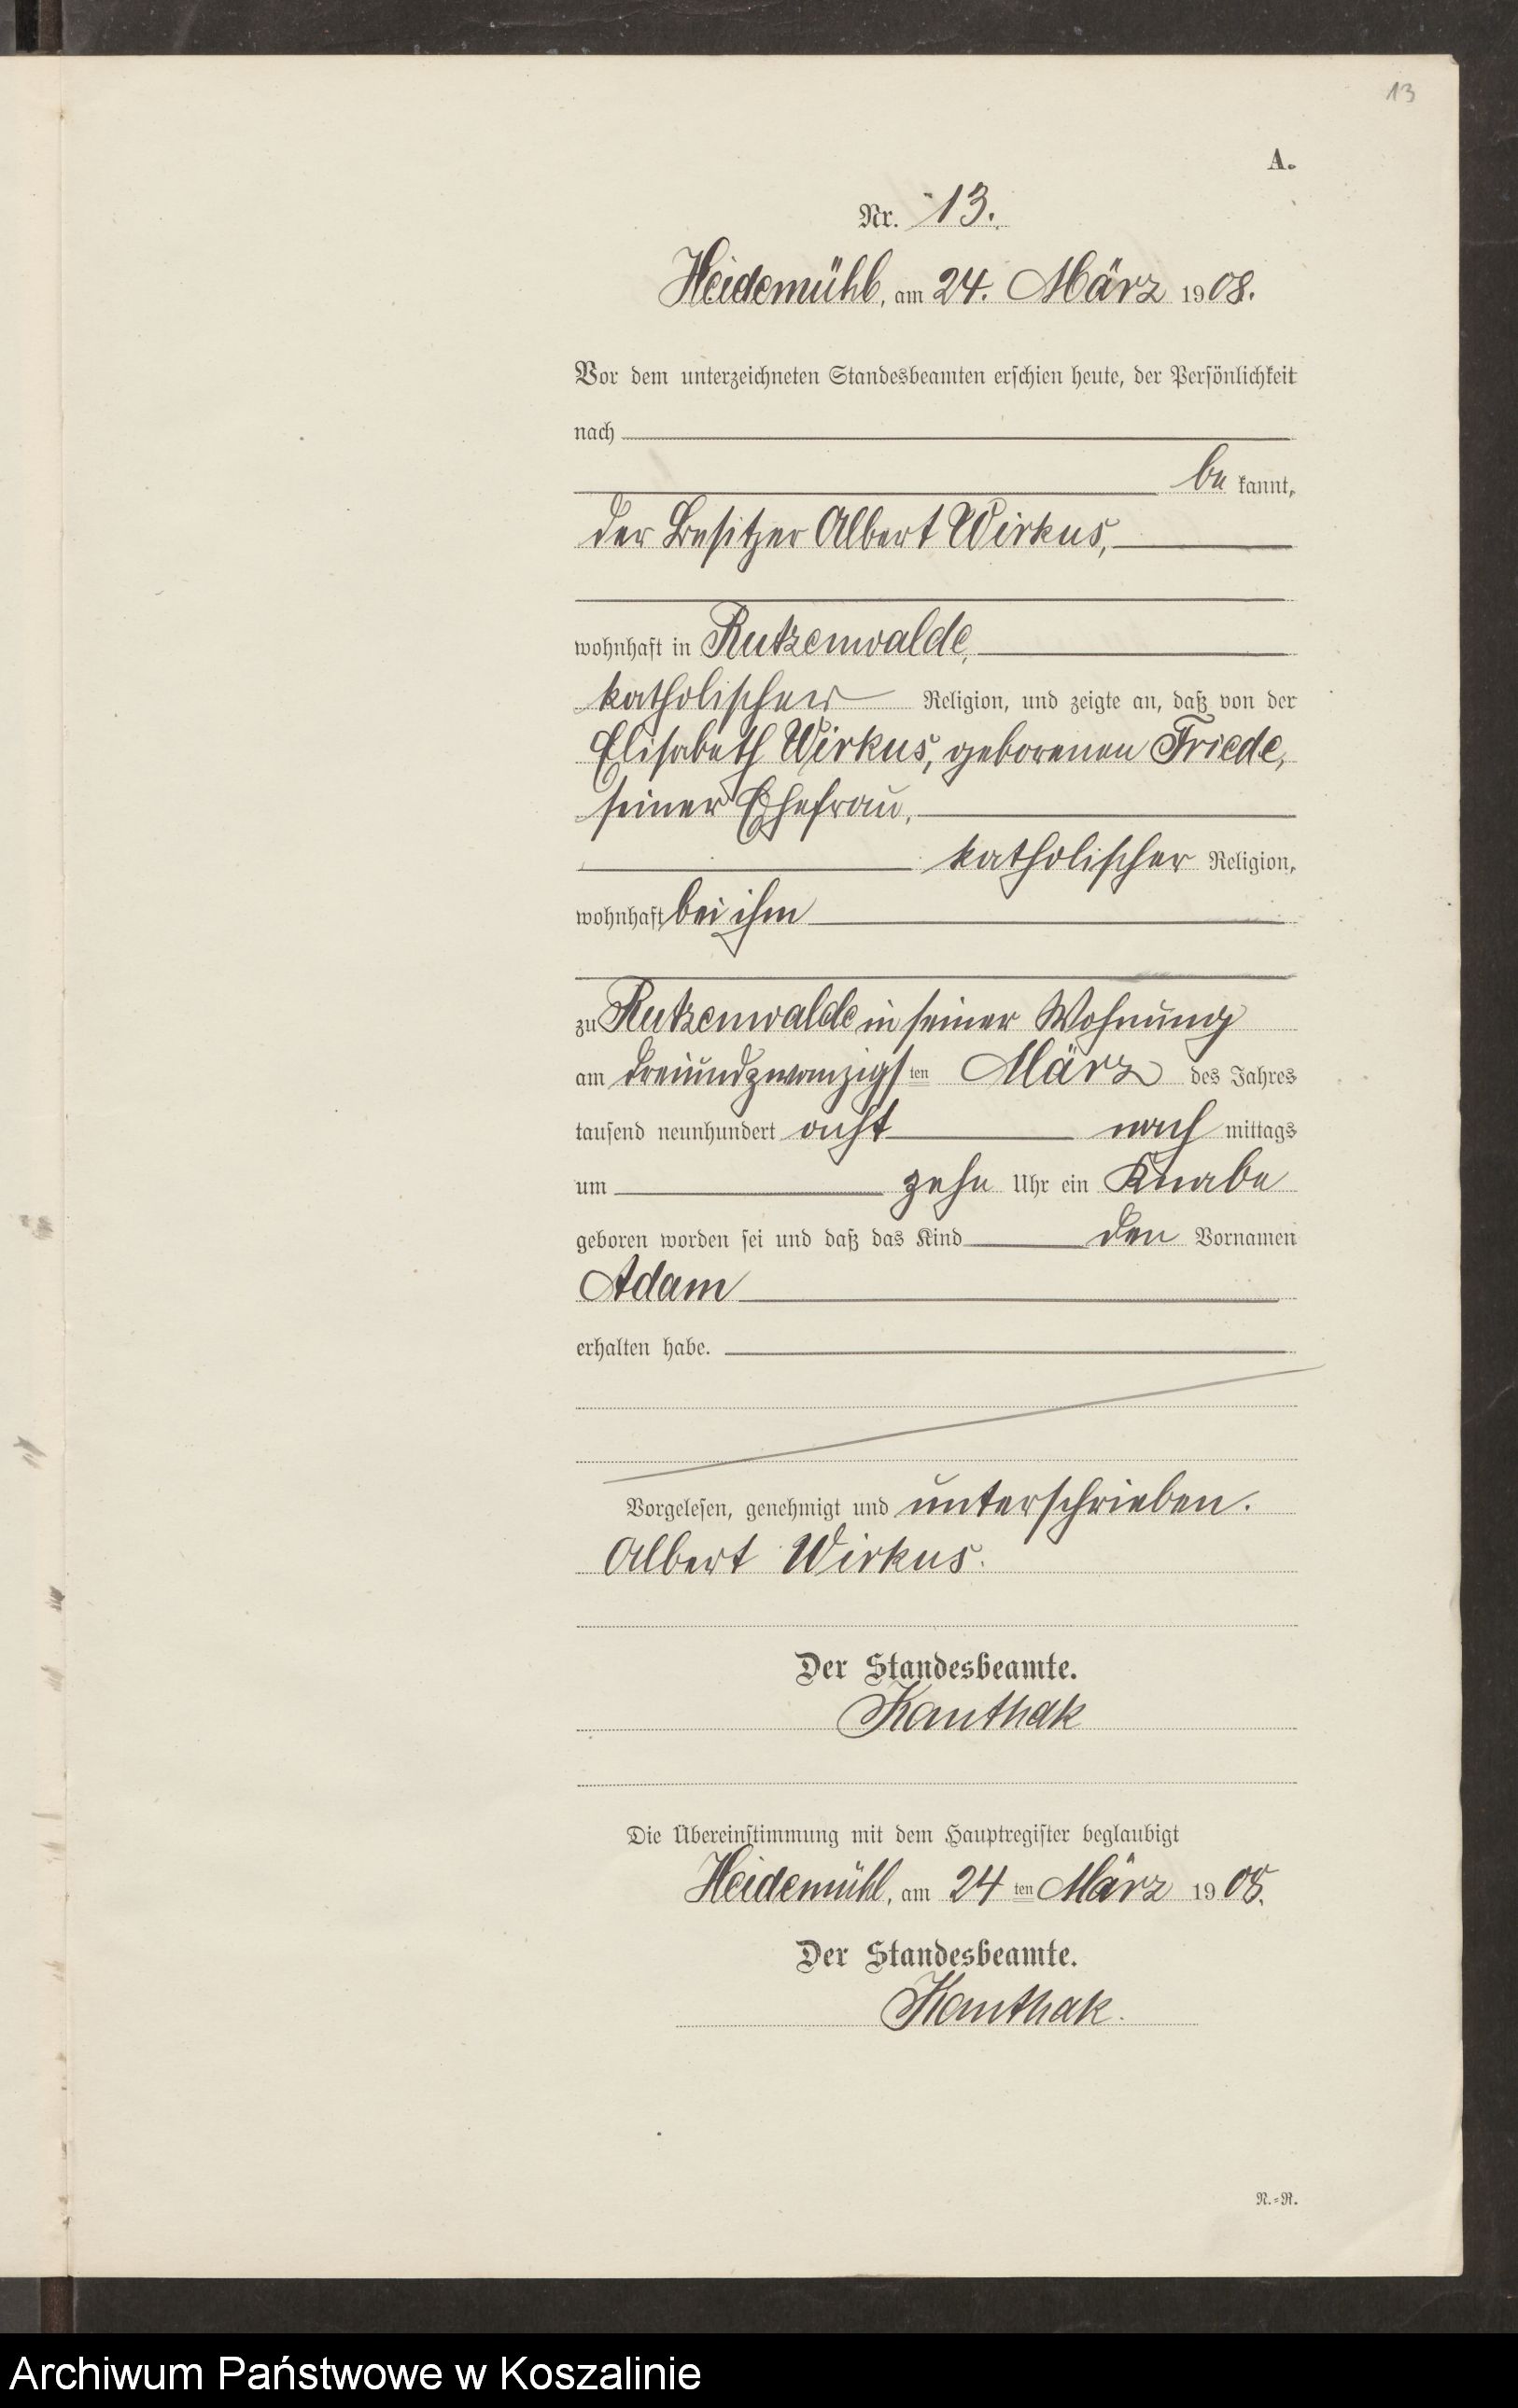 13
A.
Nr. 13.
Heidemühl, am 24. März 1908.
Vor dem unterzeichneten Standesbeamten erschien heute, der Persönlichkeit
nach
be kannt,
der Besitzer Albert Wirkus,
wohnhaft in Rutzenwalde,
katholischer Religion, und zeigte an, daß von der
Elisabeth Wirkus, geborenen Friede,
seiner Ehefrau,
katholischer Religion,
wohnhaft bei ihm
zu Rutzenwalde in seiner Wohnung
am dreiundzwanzigs ten März des Jahres
tausend neunhundert acht nach mittags
um zehn Uhr ein Knabe
geboren worden sei und daß das Kind den Vornamen
Adam
erhalten habe.
Vorgelesen, genehmigt und unterschrieben.
Albert Wirkus.
Der Standesbeamte.
Kanthak
Die Übereinstimmung mit dem Hauptregister beglaubigt
Heidemühl, am 24 ten März 1908.
Der Standesbeamte.
Kanthak.
N.=R.
Archiwum Państwowe w Koszalinie